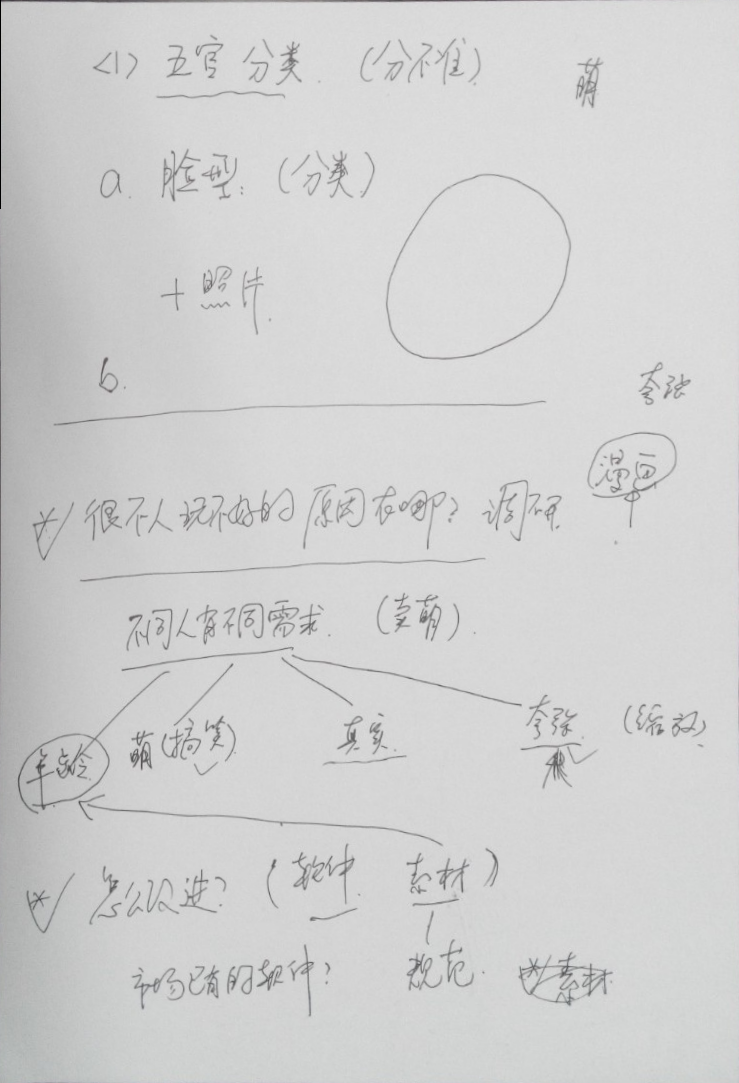 <1> 五官分类. (分不准)
萌
a. 脸型: (分类)
+ 照片.
b.
夸张
漫画
很不人玩不好的原因在哪? 调研
不同人有不同需求. (卖萌).
年龄 萌(搞笑) 真实. 夸张. (缩放).
怎么改进? (软件. 素材)
市场已有的软件? 规范. 素材